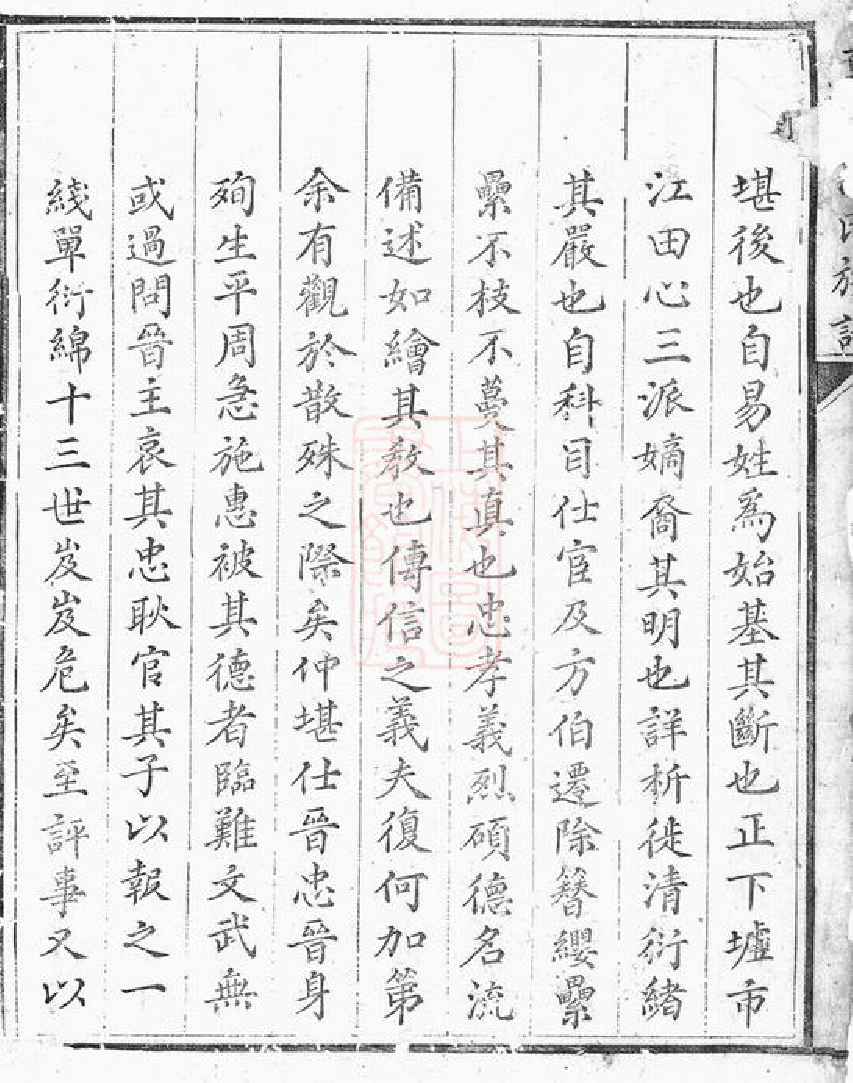 堪後也自易姓爲始基其斷也正下墟市
江田心三派嫡裔其明也詳析徙清衍緒
其嚴也自科目仕宦及方伯遷除簪纓纍
纍不枝不蔓其真也忠孝義烈碩德名流
備述如繪其教也傳信之義夫復何加第
余有觀於散殊之際矣仲堪仕晉忠晉身
殉生平周急施惠被其德者臨難文武無
或過問晉主哀其忠耿官其子以報之一
綫單衍綿十三世岌岌危矣至評事又以